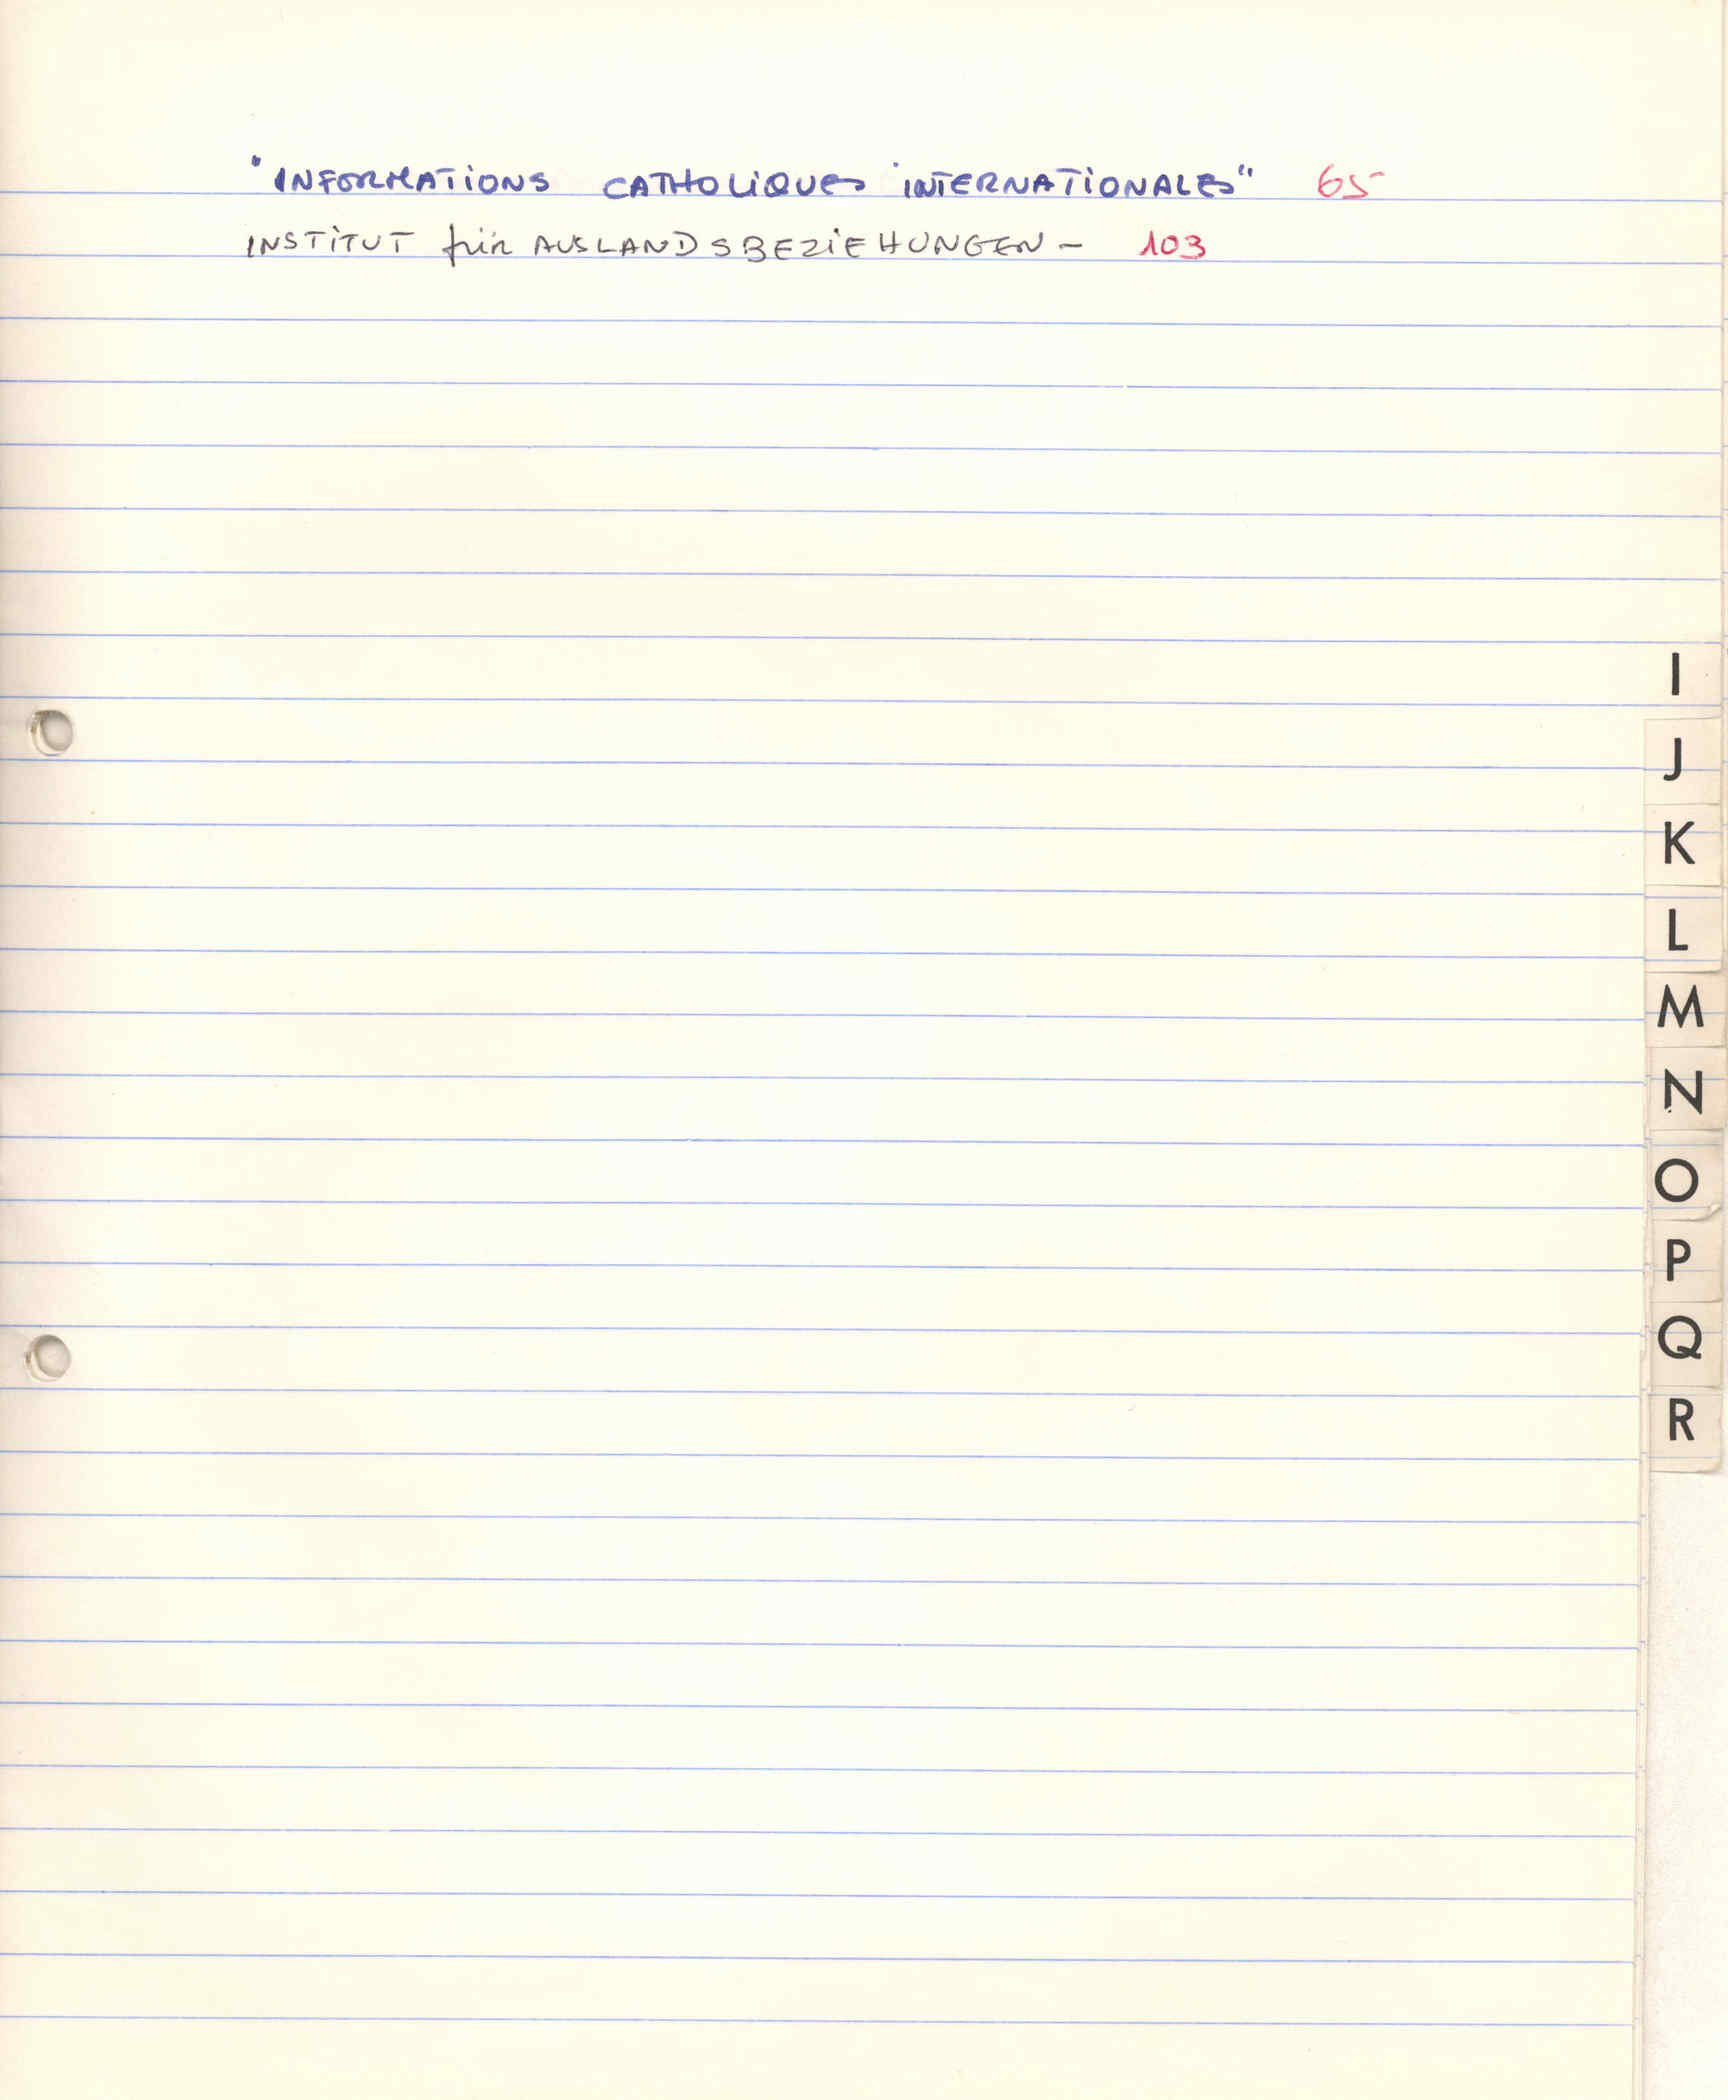 "INFORMATIONS CATHOLIQUES INTERNATIONALES" 65
INSTITUT für AUSLANDSBEZIEHUNGEN - 103
I
J
K
L
M
N
O
P
Q
R